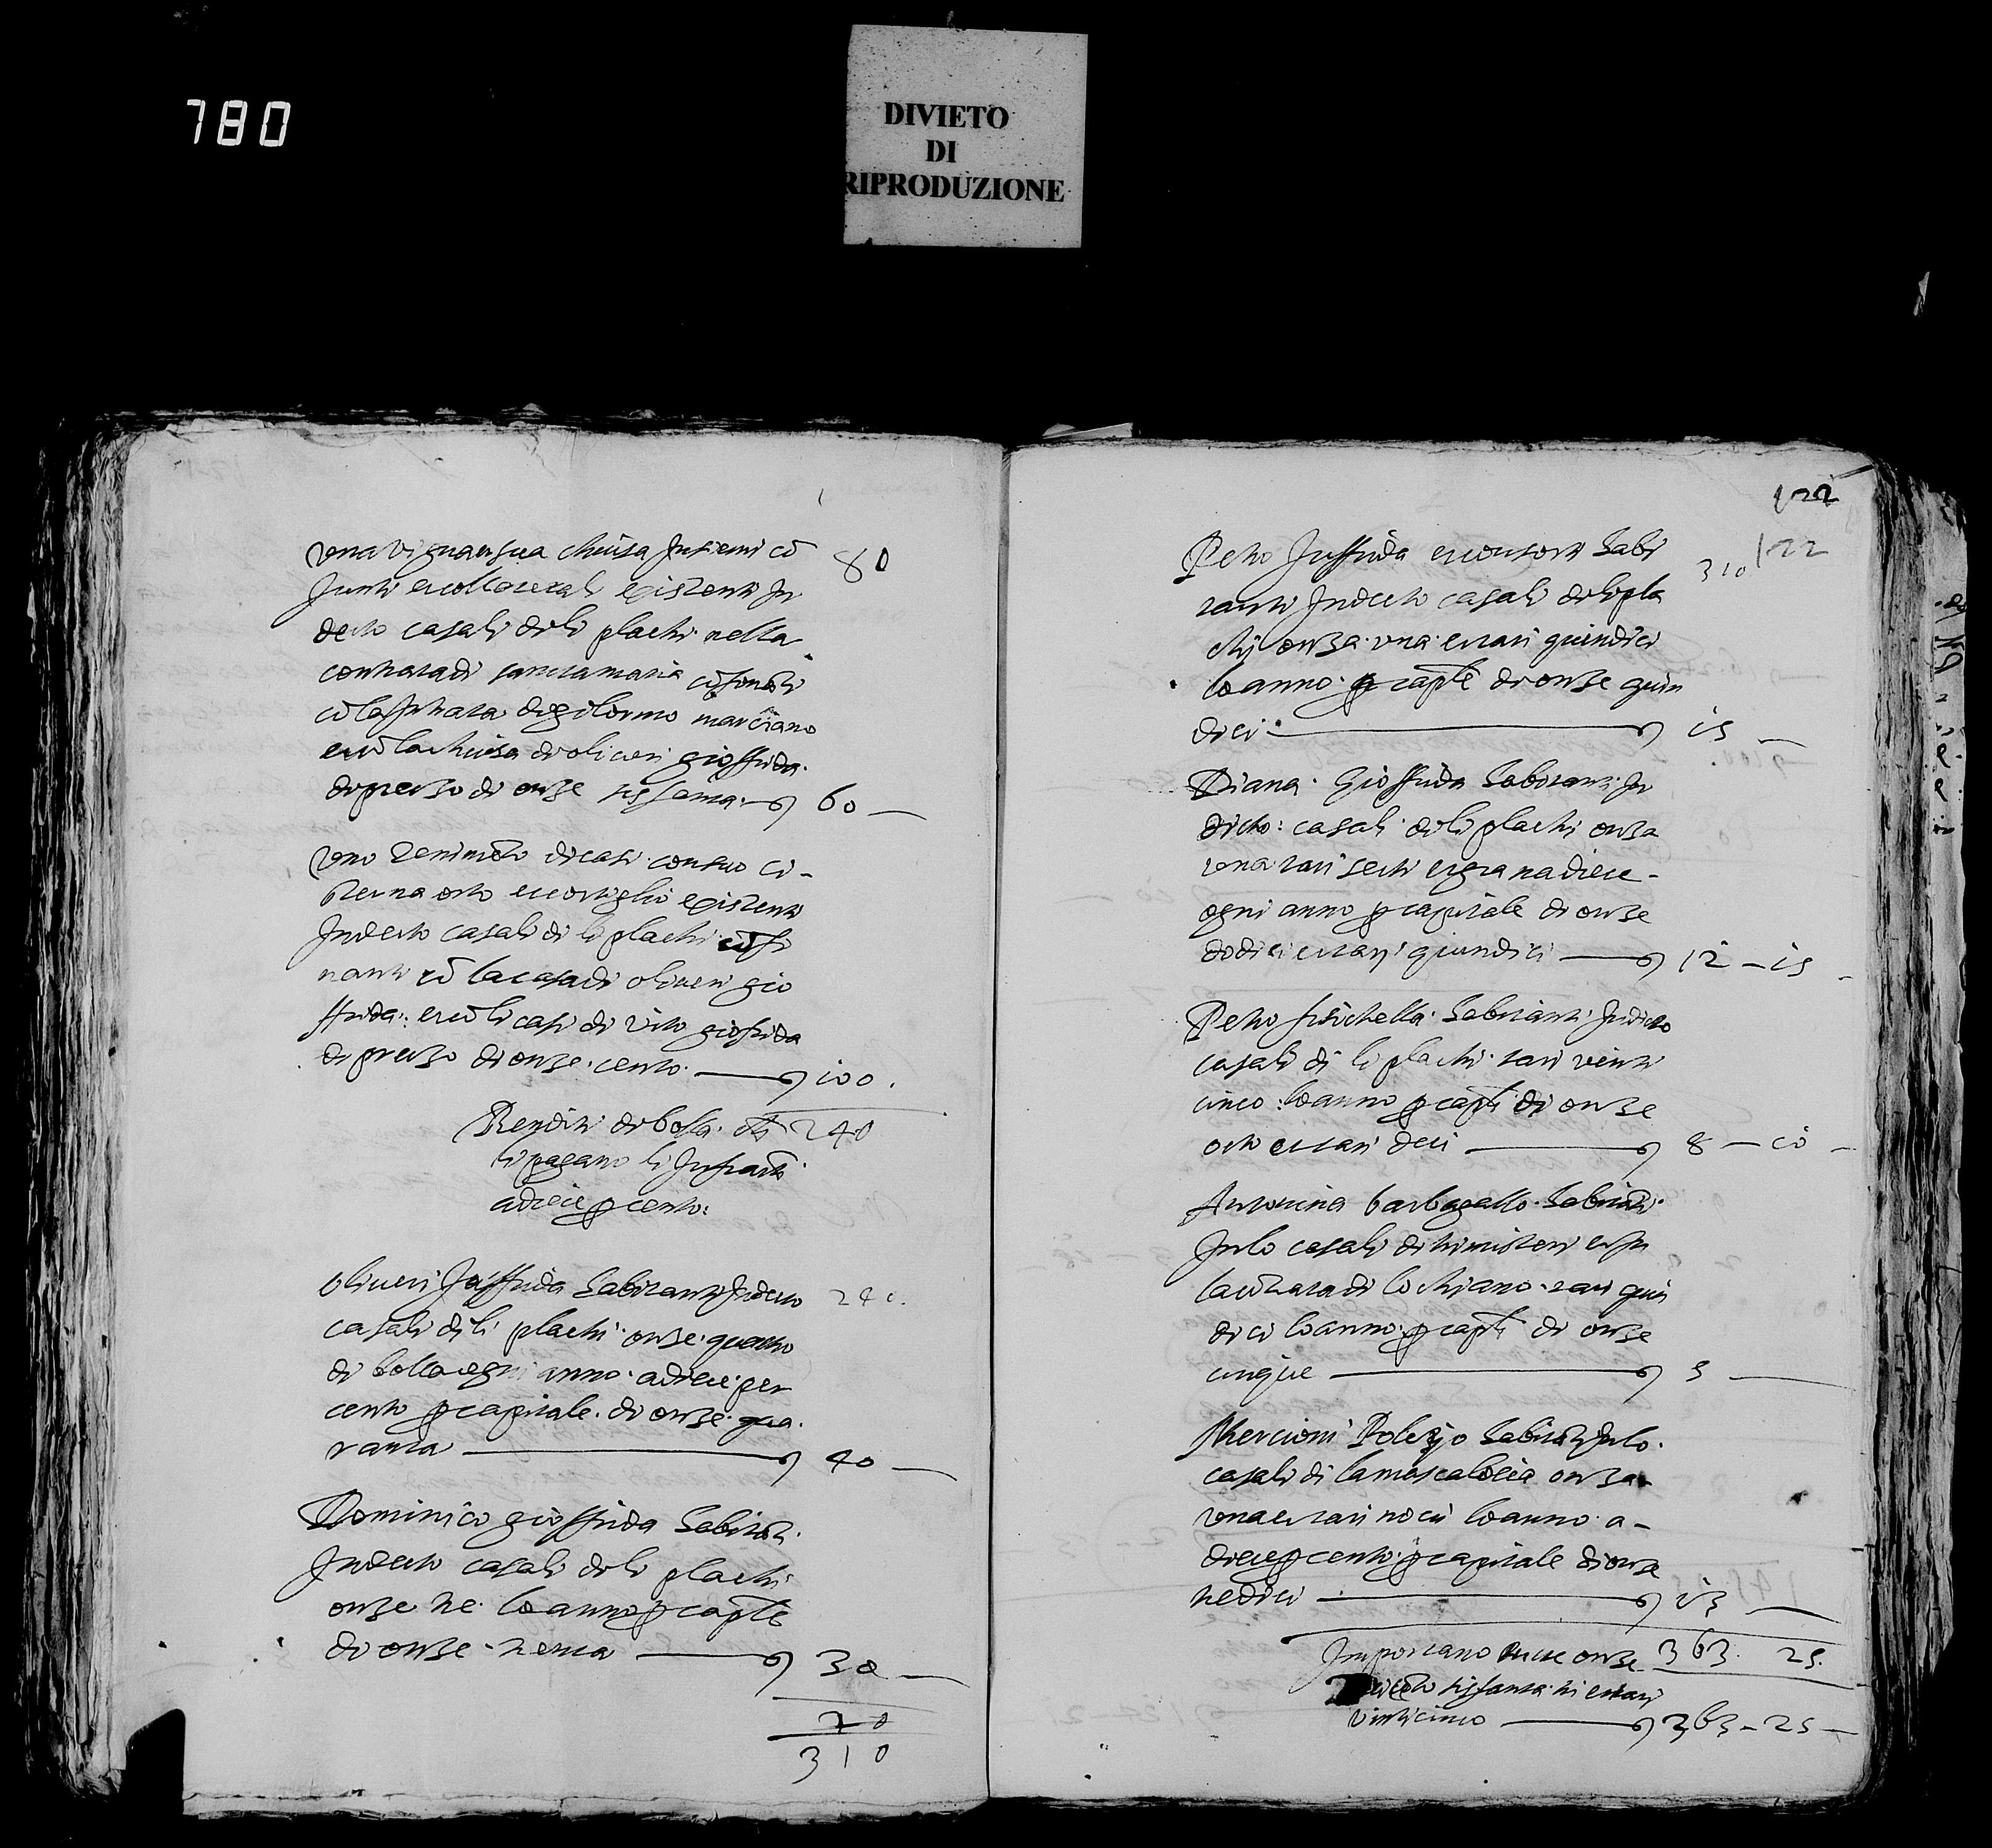 780
DIVIETO
DI
RIPRODUZIONE
una vigna en sua chiusa Insiemi cō
Junti et collaterali existenti In
decto casali di li plachi nella
contrata di sancta maria cōfināti
cō la Intrata di gilormo marciano
et cō la chiusa di oliveri gioffrida
di prezo di onze sissanta 60
80
uno tenimēto di casi con suo ci-
sterna orto et cortiglio existenti
In decto casali di li plachi cōfi
nanti cō la casa di oliveri gio
ffrida: et cō li casi di vito giofrida
di prezo di onze cento 100
Renditi di bolla 240
li pagano li Infracti
a diece p cento:
oliveri Joffrida habitanti In decto 240
casali di li plachi onze quatro
di bolla ogni anno a diece per
cento p capitale di onze qua
ranta 40
Dominico gioffrida habitāti
In decto casali di li plachi
onze tre lo anno p capītē
di onze trenta 30
70
310
122
122
310
Petro Juffrida et consorti habi
tanti In decto casali di li pla
chi onza una et tari quindici
lo anno p capītē di onze quin
dici 15
Diana Gioffrida habitanti In
dicto: casali di li plachi onza
una tari setti et grana diece
ogni anno p capitale di onze
dodici et tari quindici 12 - 15
Petro fisichella habitanti In dicto
casali di li plachi tari vinti
cinco lo anno p capītī di onze
octo et tari deci 8 - 10
Antonina barbagallo habitāti
In lo casali di trimisteri et In
la cōtrata di lo chiano tari quin
dici lo anno p capītī di onze
cinque 5
habitāti In lo
casali di la mascalucia onza
una et tari novi lo anno a
diece p cento p capitale di onze
tredici 13
Importano onze 363. 25.
tricēto sissanta tri et tari
vinticinco 363 - 25